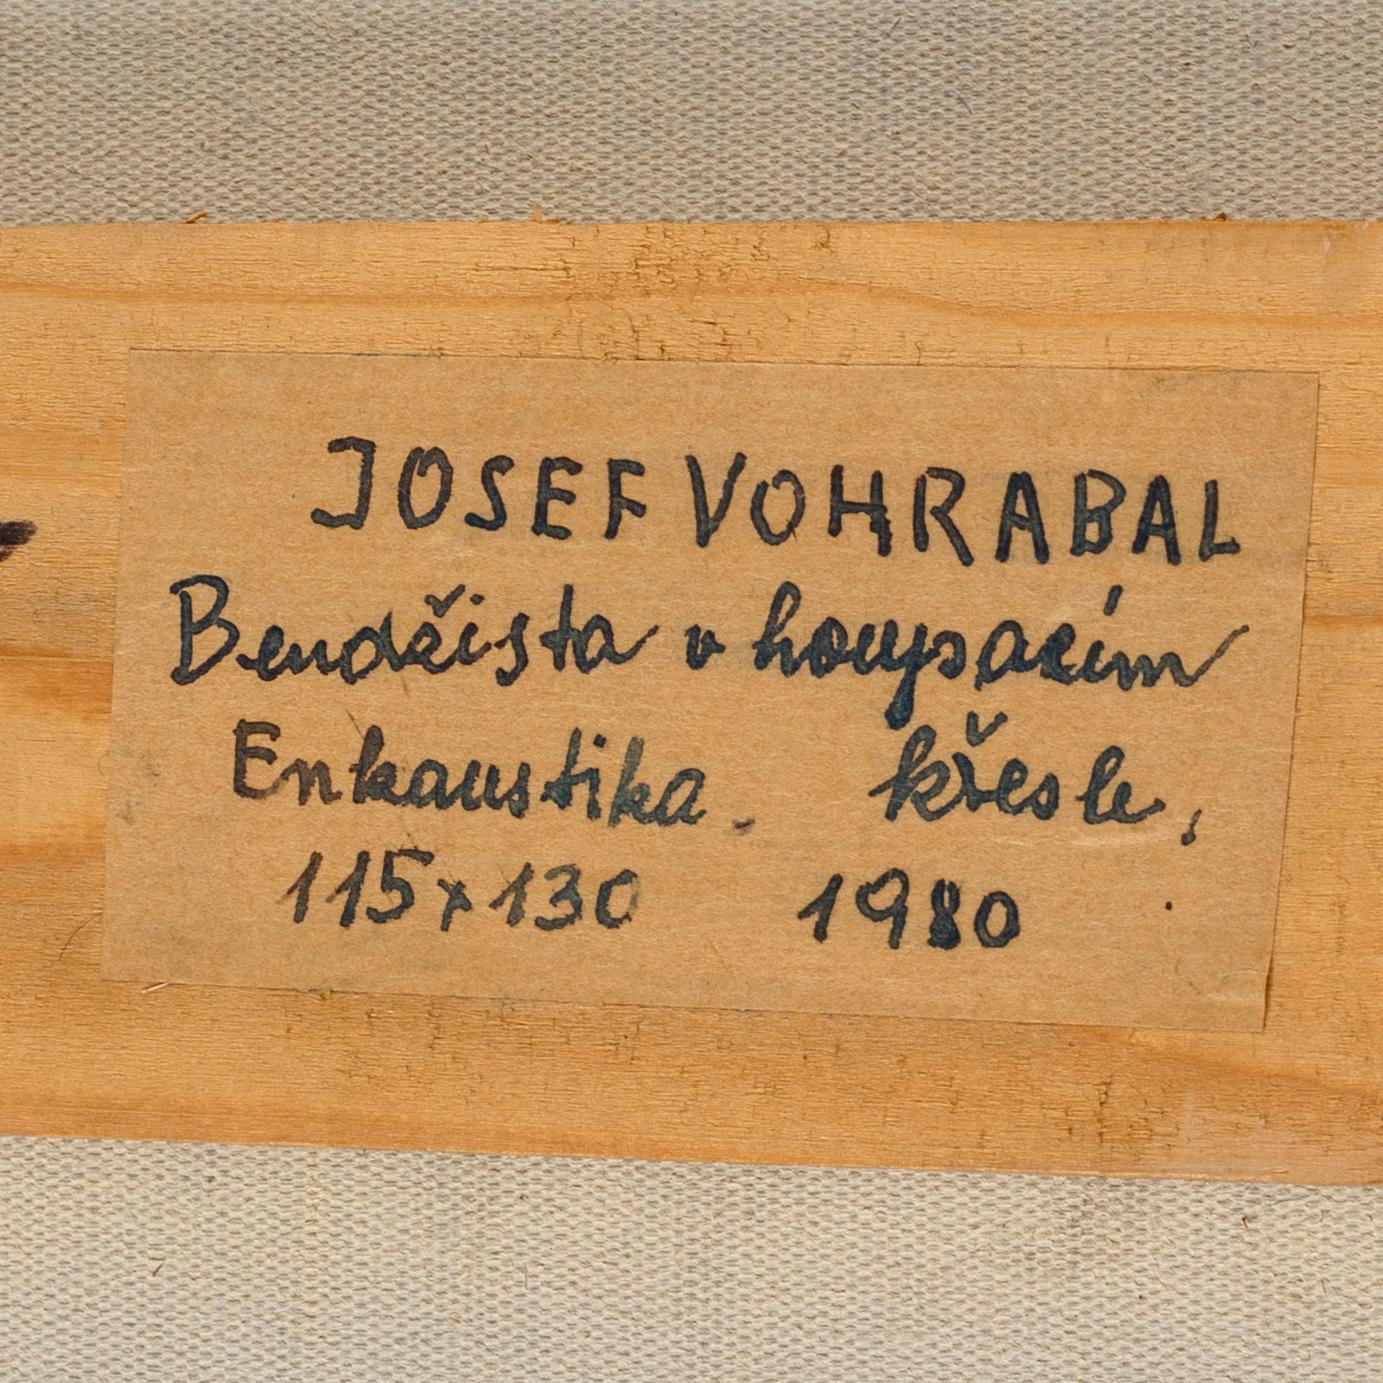 JOSEF VOHRABAL
Bendžista v houpacím
Enkaustika. křesle,
115x130 1980